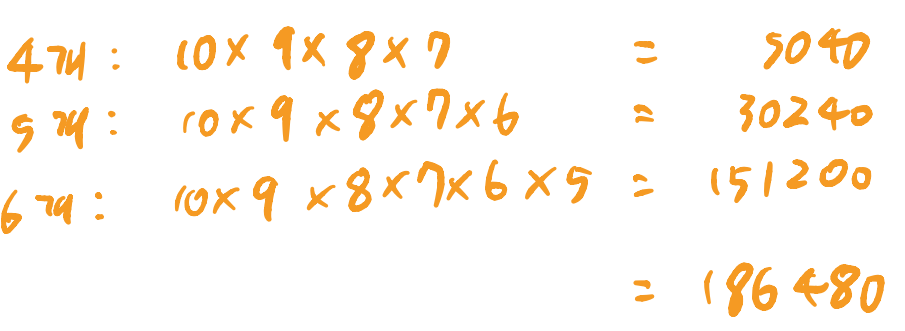 4개: 10 × 9 × 8 × 7 = 5040
5개: 10 × 9 × 8 × 7 × 6 = 30240
6개: 10 × 9 × 8 × 7 × 6 × 5 = 151200
= 186480